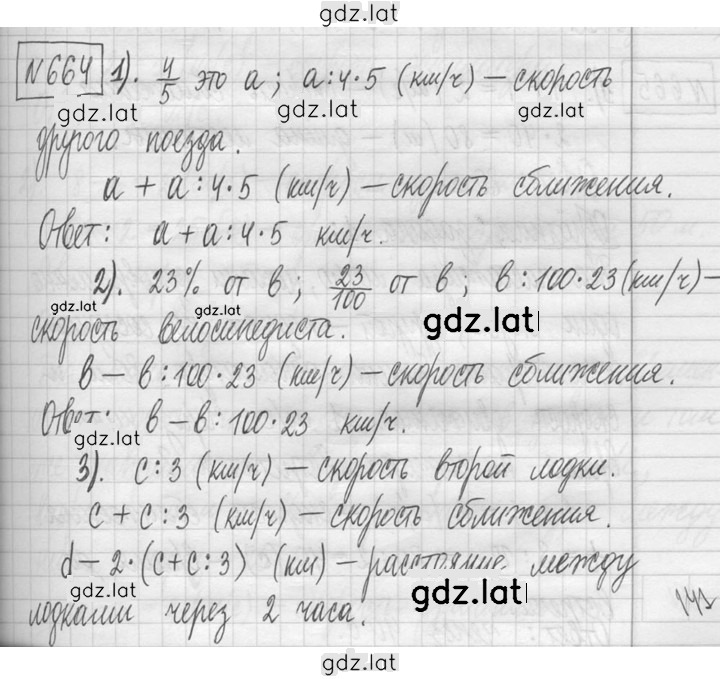 gdz.lat
N664 1). 4/5 это a; a:4·5 (км/ч) – скорость
gdz.lat gdz.lat gdz.lat
другого поезда.
a + a:4·5 (км/ч) – скорость сближения.
Ответ: a + a:4·5 км/ч.
2). 23% от в; 23/100 от в; в:100·23(км/ч) –
gdz.lat gdz.lat
скорость велосипедиста. gdz.lat
в – в:100·23 (км/ч) – скорость сближения.
Ответ: в – в:100·23 км/ч.
gdz.lat
3). c:3 (км/ч) – скорость второй лодки.
c + c:3 (км/ч) – скорость сближения.
d – 2·(c+c:3) (км) – расстояние между
лодками через 2 часа.
gdz.lat